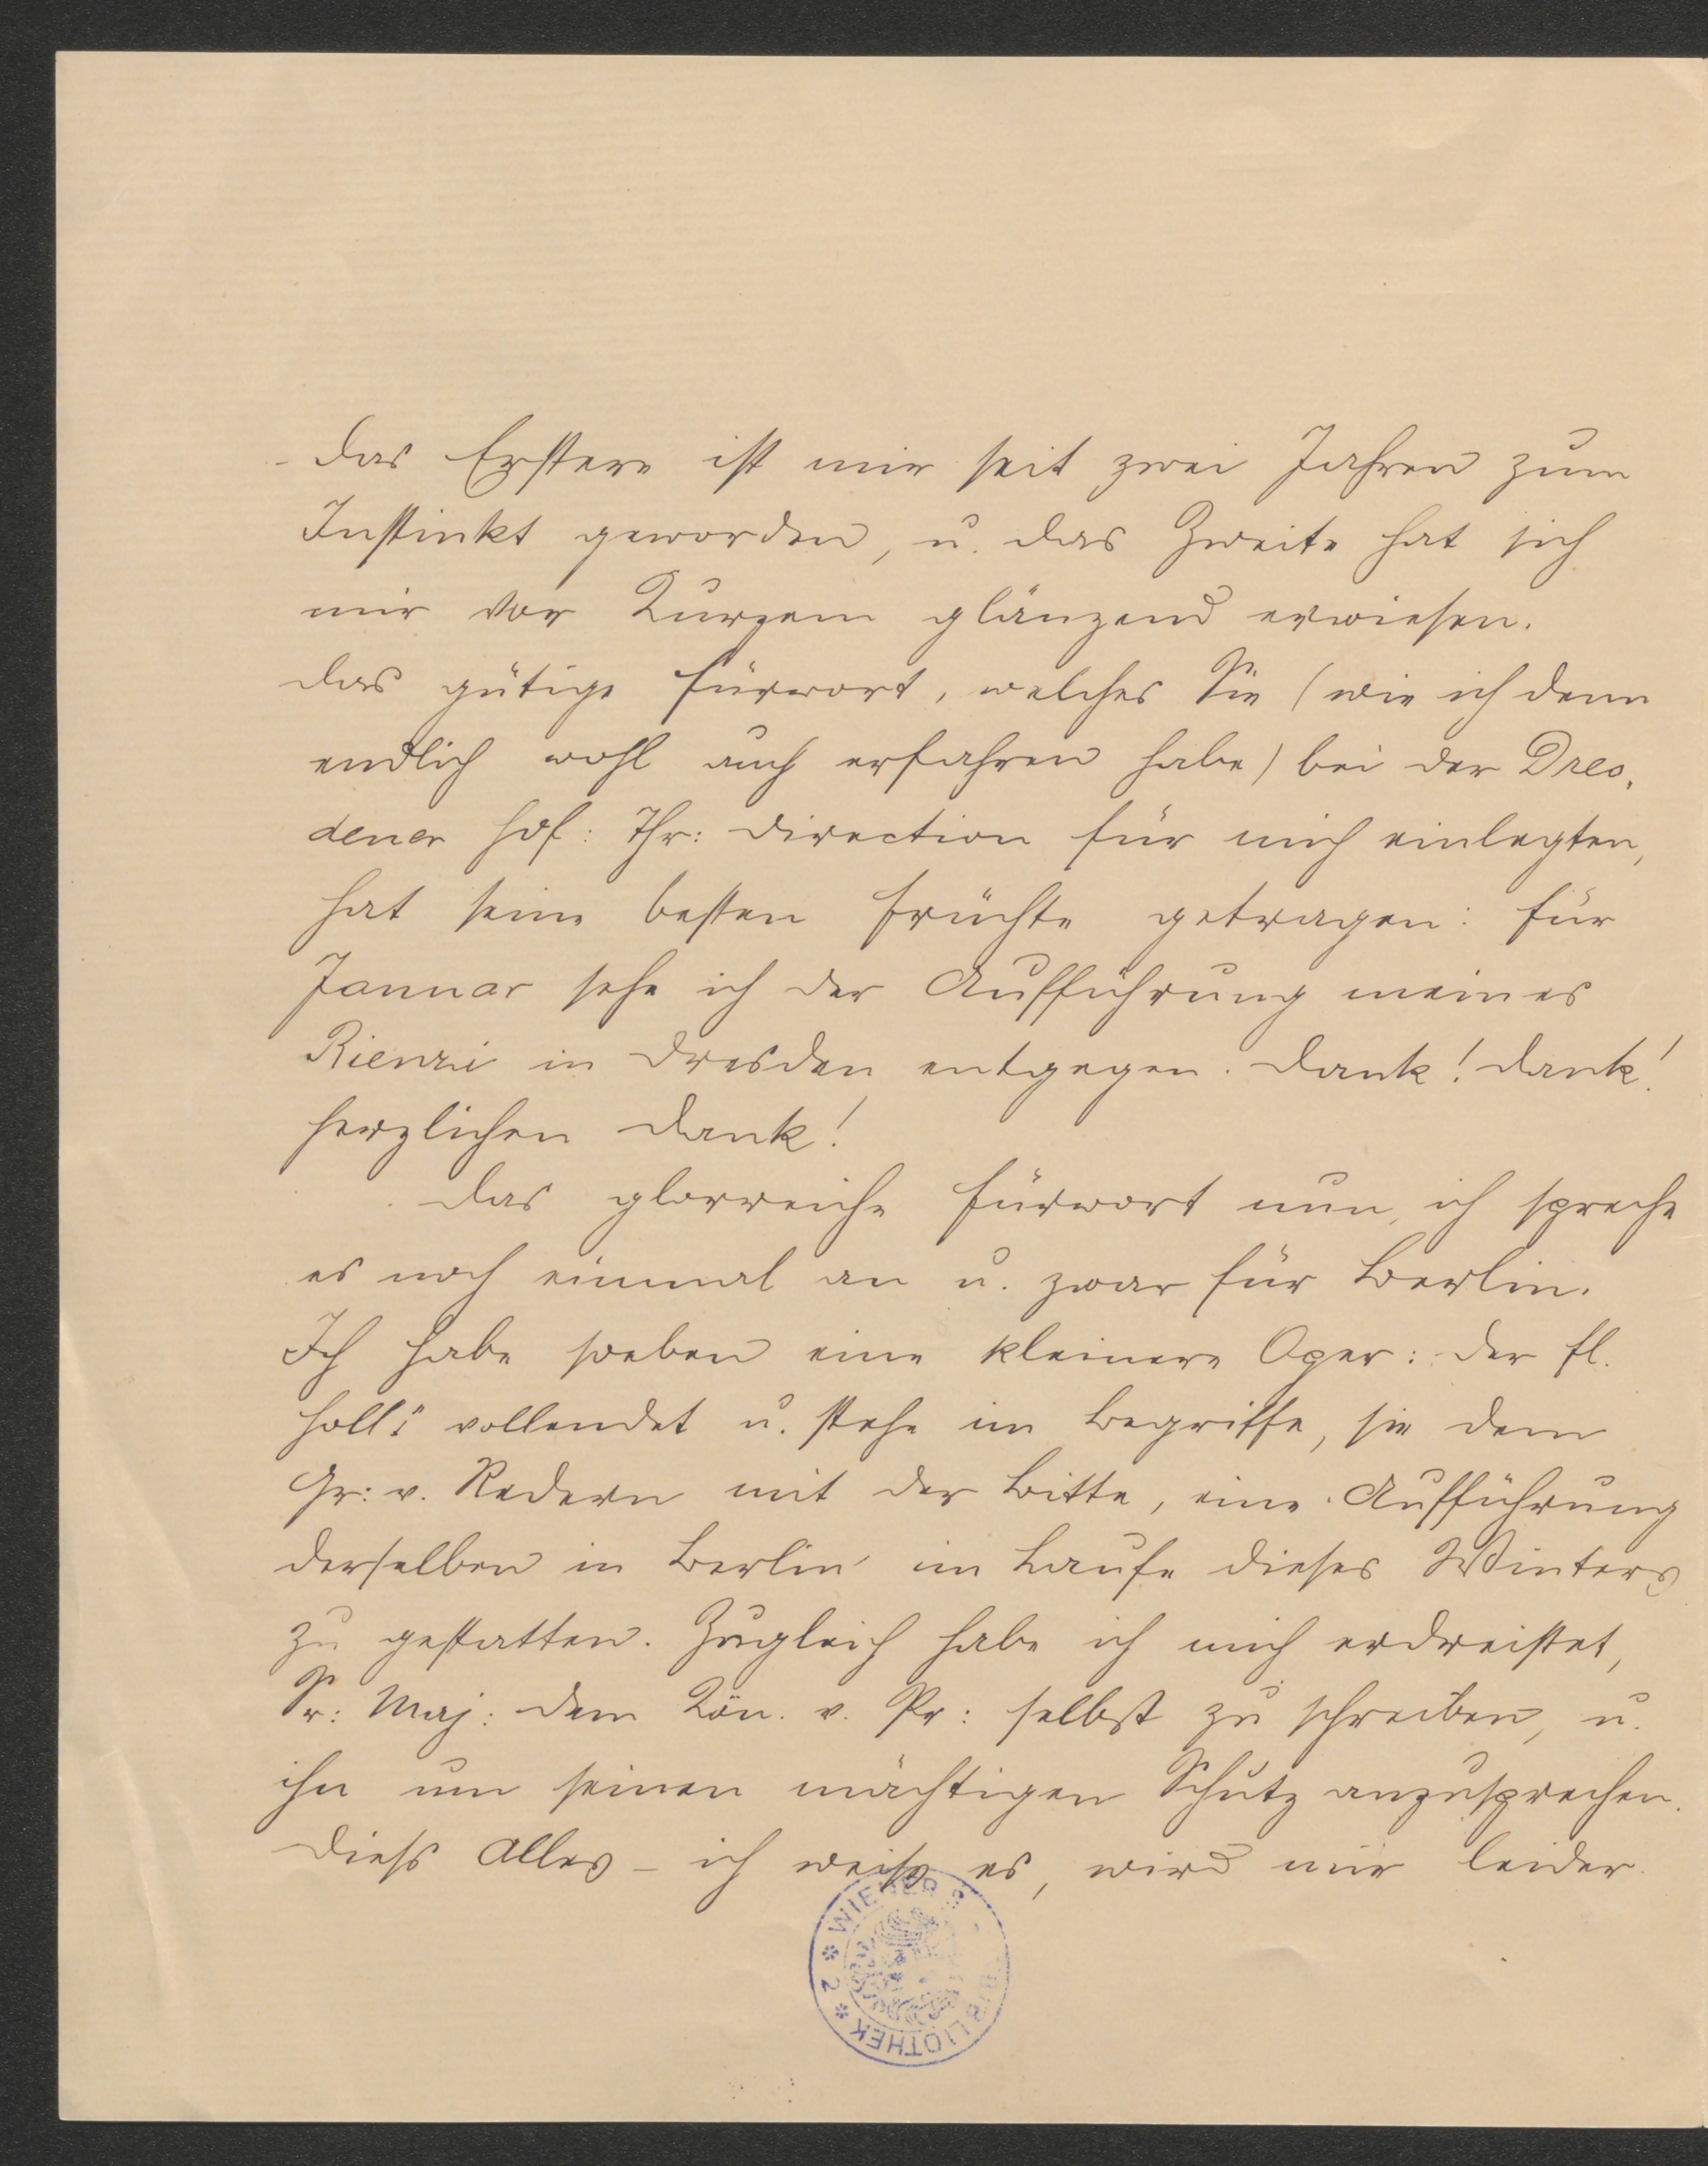 das Erstere ist mir seit zwei Jahren zum
Instinkt geworden, u. das Zweite hat sich
mir vor Kurzem glänzend erwiesen.
das gütige Fürwort, welches Sie (wie ich denn
endlich wohl auch erfahren habe) bei der Dres,
dener Hof: Thr: direction für mich einlegten,
hat seine besten Früchte getragen: für
Januar sehe ich der Aufführung meines
Rienzi in Dresden entgegen. Dank! Dank!
herzlichen Dank!
das glorreiche Fürwort nun, ich spreche
es noch einmal an u. zwar für Berlin.
Ich habe soeben eine kleinere Oper: der fl.
Holl: vollendet u. stehe im Begriffe, sie dem
Gr: v. Redern mit der Bitte, eine Aufführung
derselben in Berlin im Laufe dieses Winters
zu gestatten. Zugleich habe ich mich erdreistet,
Sr: Maj: dem Kön. v. Pr: selbst zu schreiben, u.
ihn um seinen mächtigen Schutz anzusprechen.
dieß Alles – ich weiß es, wird mir leider
WIENER BIBLIOTHEK * 2 *